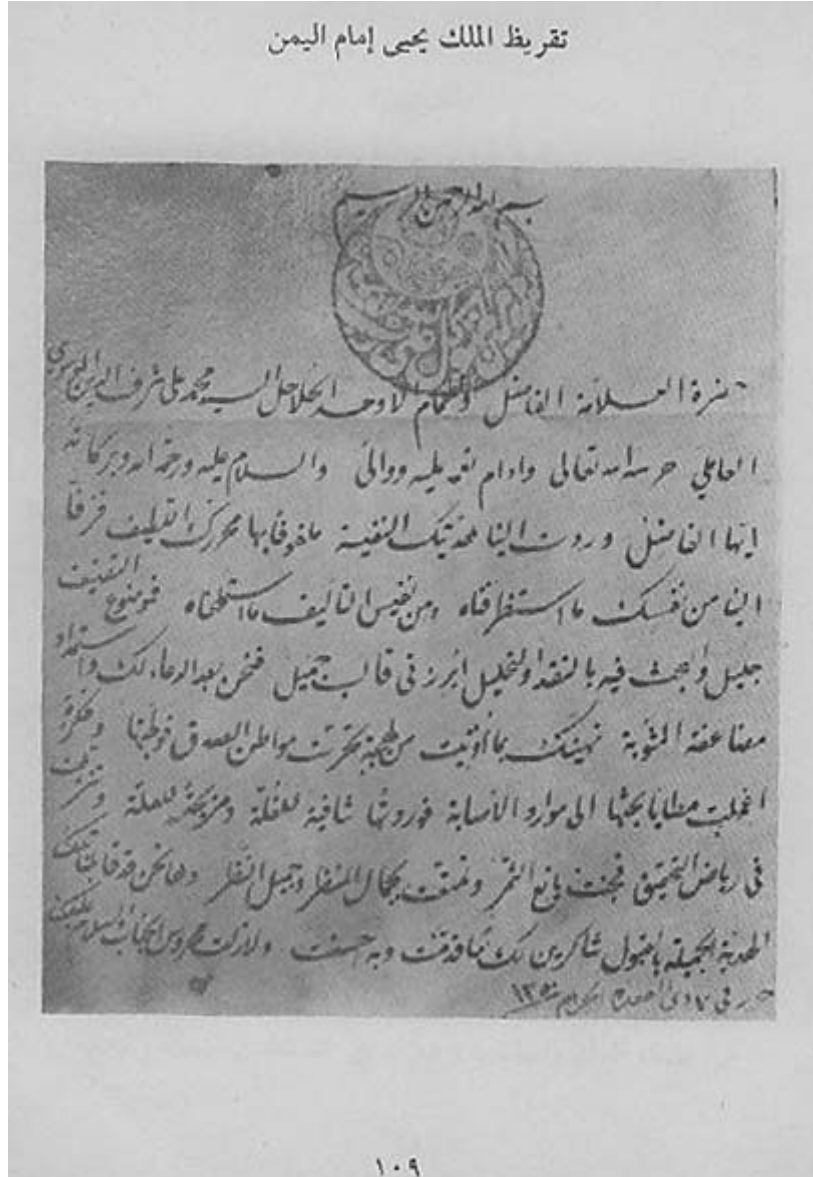 تقريظ الملك يحيى إمام اليمن
بسم الله الرحمن الرحيم
حضرة العلامة الفاضل والهمام الاوحد الحلاحل السيد محمد علي شرف الدين الموسوي
العاملي حرسه الله تعالى وادام نعمه عليه ووالى والسلام عليه ورحمة الله وبركاته
ايها الفاضل وردت الينا هديتك النفيسة ملفوفا بها محررك اللطيف فزفا
الينا من نفسك ما استظرفناه ومن نفيس التأليف ما استلمحناه فموضوع التصنيف
جليل والبحث فيه بالنقد والتحليل ابرز في قالب جميل فنحن بعد الدعاء لك واستمداد
مضاعفة المثوبة نهنيك بما أوتيت من تحرت مواطن الصدق فوطنها وفكرة
اعملت مطايا بحثها الى موارد الاصابة فوردتها شافية للغلة ومزيحة للعلة وتنزهت
في رياض التحقيق فجنت يانع الثمر وتمتعت بجمال المنظر وجميل النظر وها نحن قد قابلنا تلك
الهدية الجميلة بالقبول شاكرين لك ما قدمت وبه احسنت ولا زلت محروس الجناب والسلام عليك
حرر في ٧ ذي القعدة الحرام سنة
١٠٩